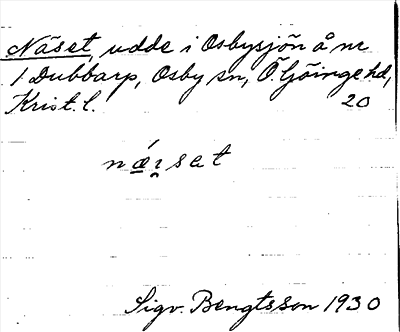 Näset, udde i Osbysjön å nr
1 Dubbarp, Osby sn, Ö. Göinge hd,
Krist. l. 20
nǽi̯set
Sigv. Bengtsson 1930